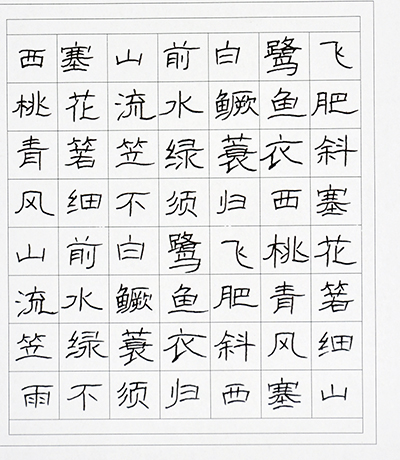 西塞山前白鹭飞
桃花流水鳜鱼肥
青箬笠绿蓑衣斜
风细不须归西塞
山前白鹭飞桃花
流水鳜鱼肥青箬
笠绿蓑衣斜风细
雨不须归西塞山